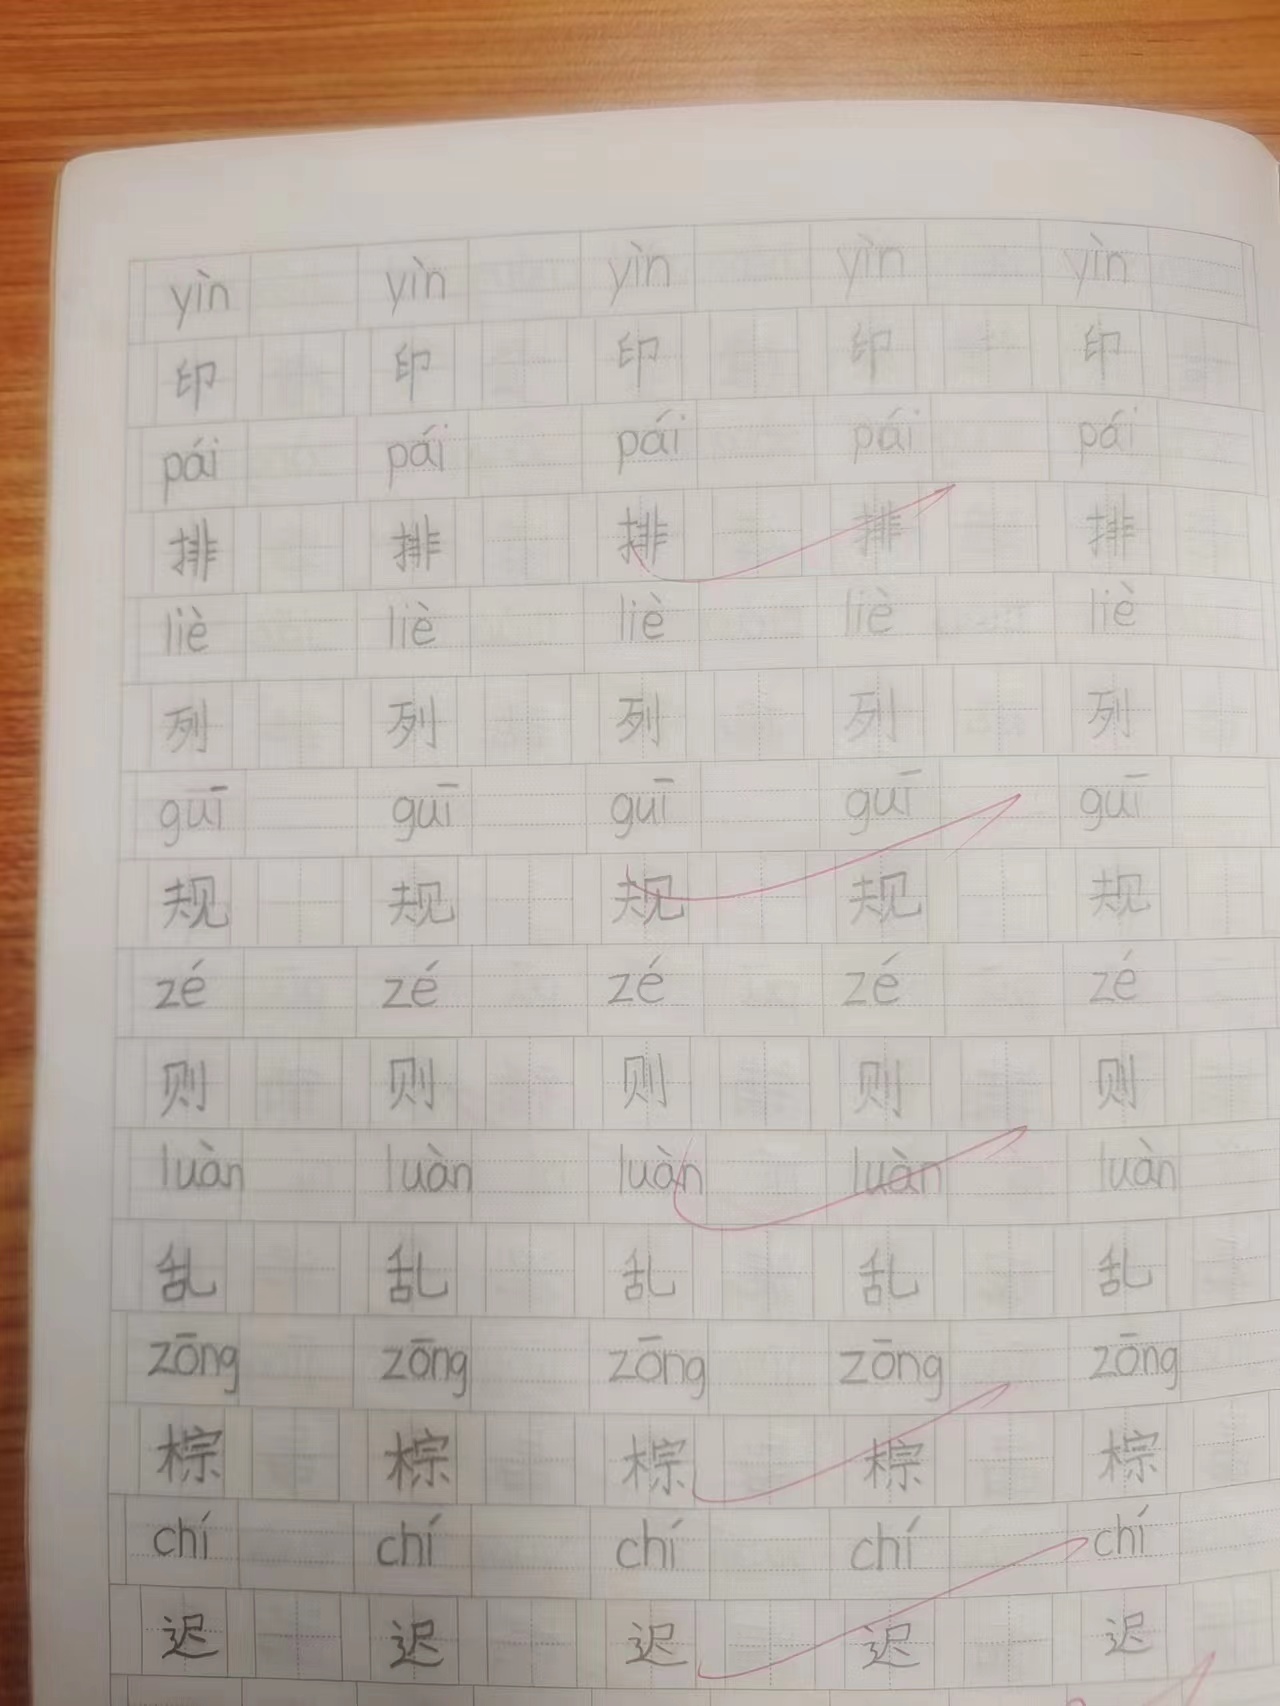 yìn yìn yìn yìn yìn
印 印 印 印 印
pái pái pái pái pái
排 排 排 排 排
liè liè liè liè liè
列 列 列 列 列
guī guī guī guī guī
规 规 规 规 规
zé zé zé zé zé
则 则 则 则 则
luàn luàn luàn luàn luàn
乱 乱 乱 乱 乱
zōng zōng zōng zōng zōng
棕 棕 棕 棕 棕
chí chí chí chí chí
迟 迟 迟 迟 迟